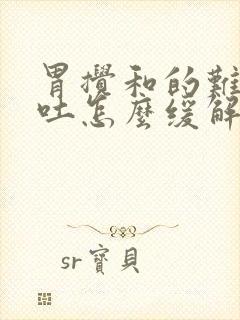 胃攪和的難
吐怎麼緩解
sr寶貝